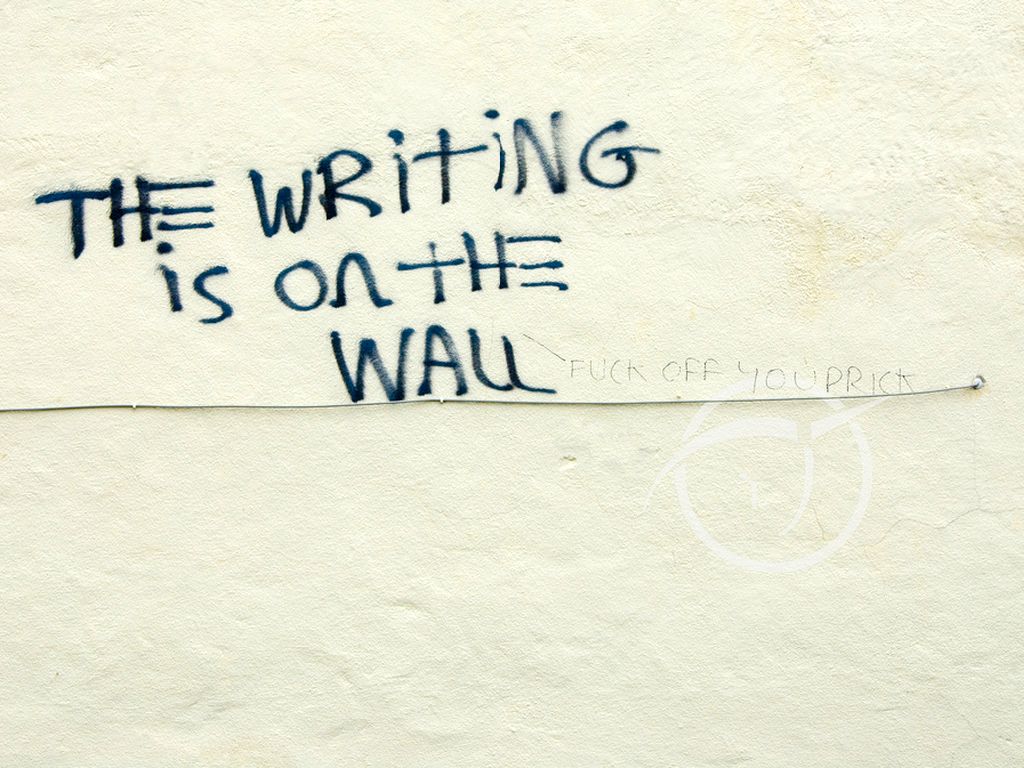 THE WRiTiNG
iS On THE
WALL
FUCK OFF YOU PRICK